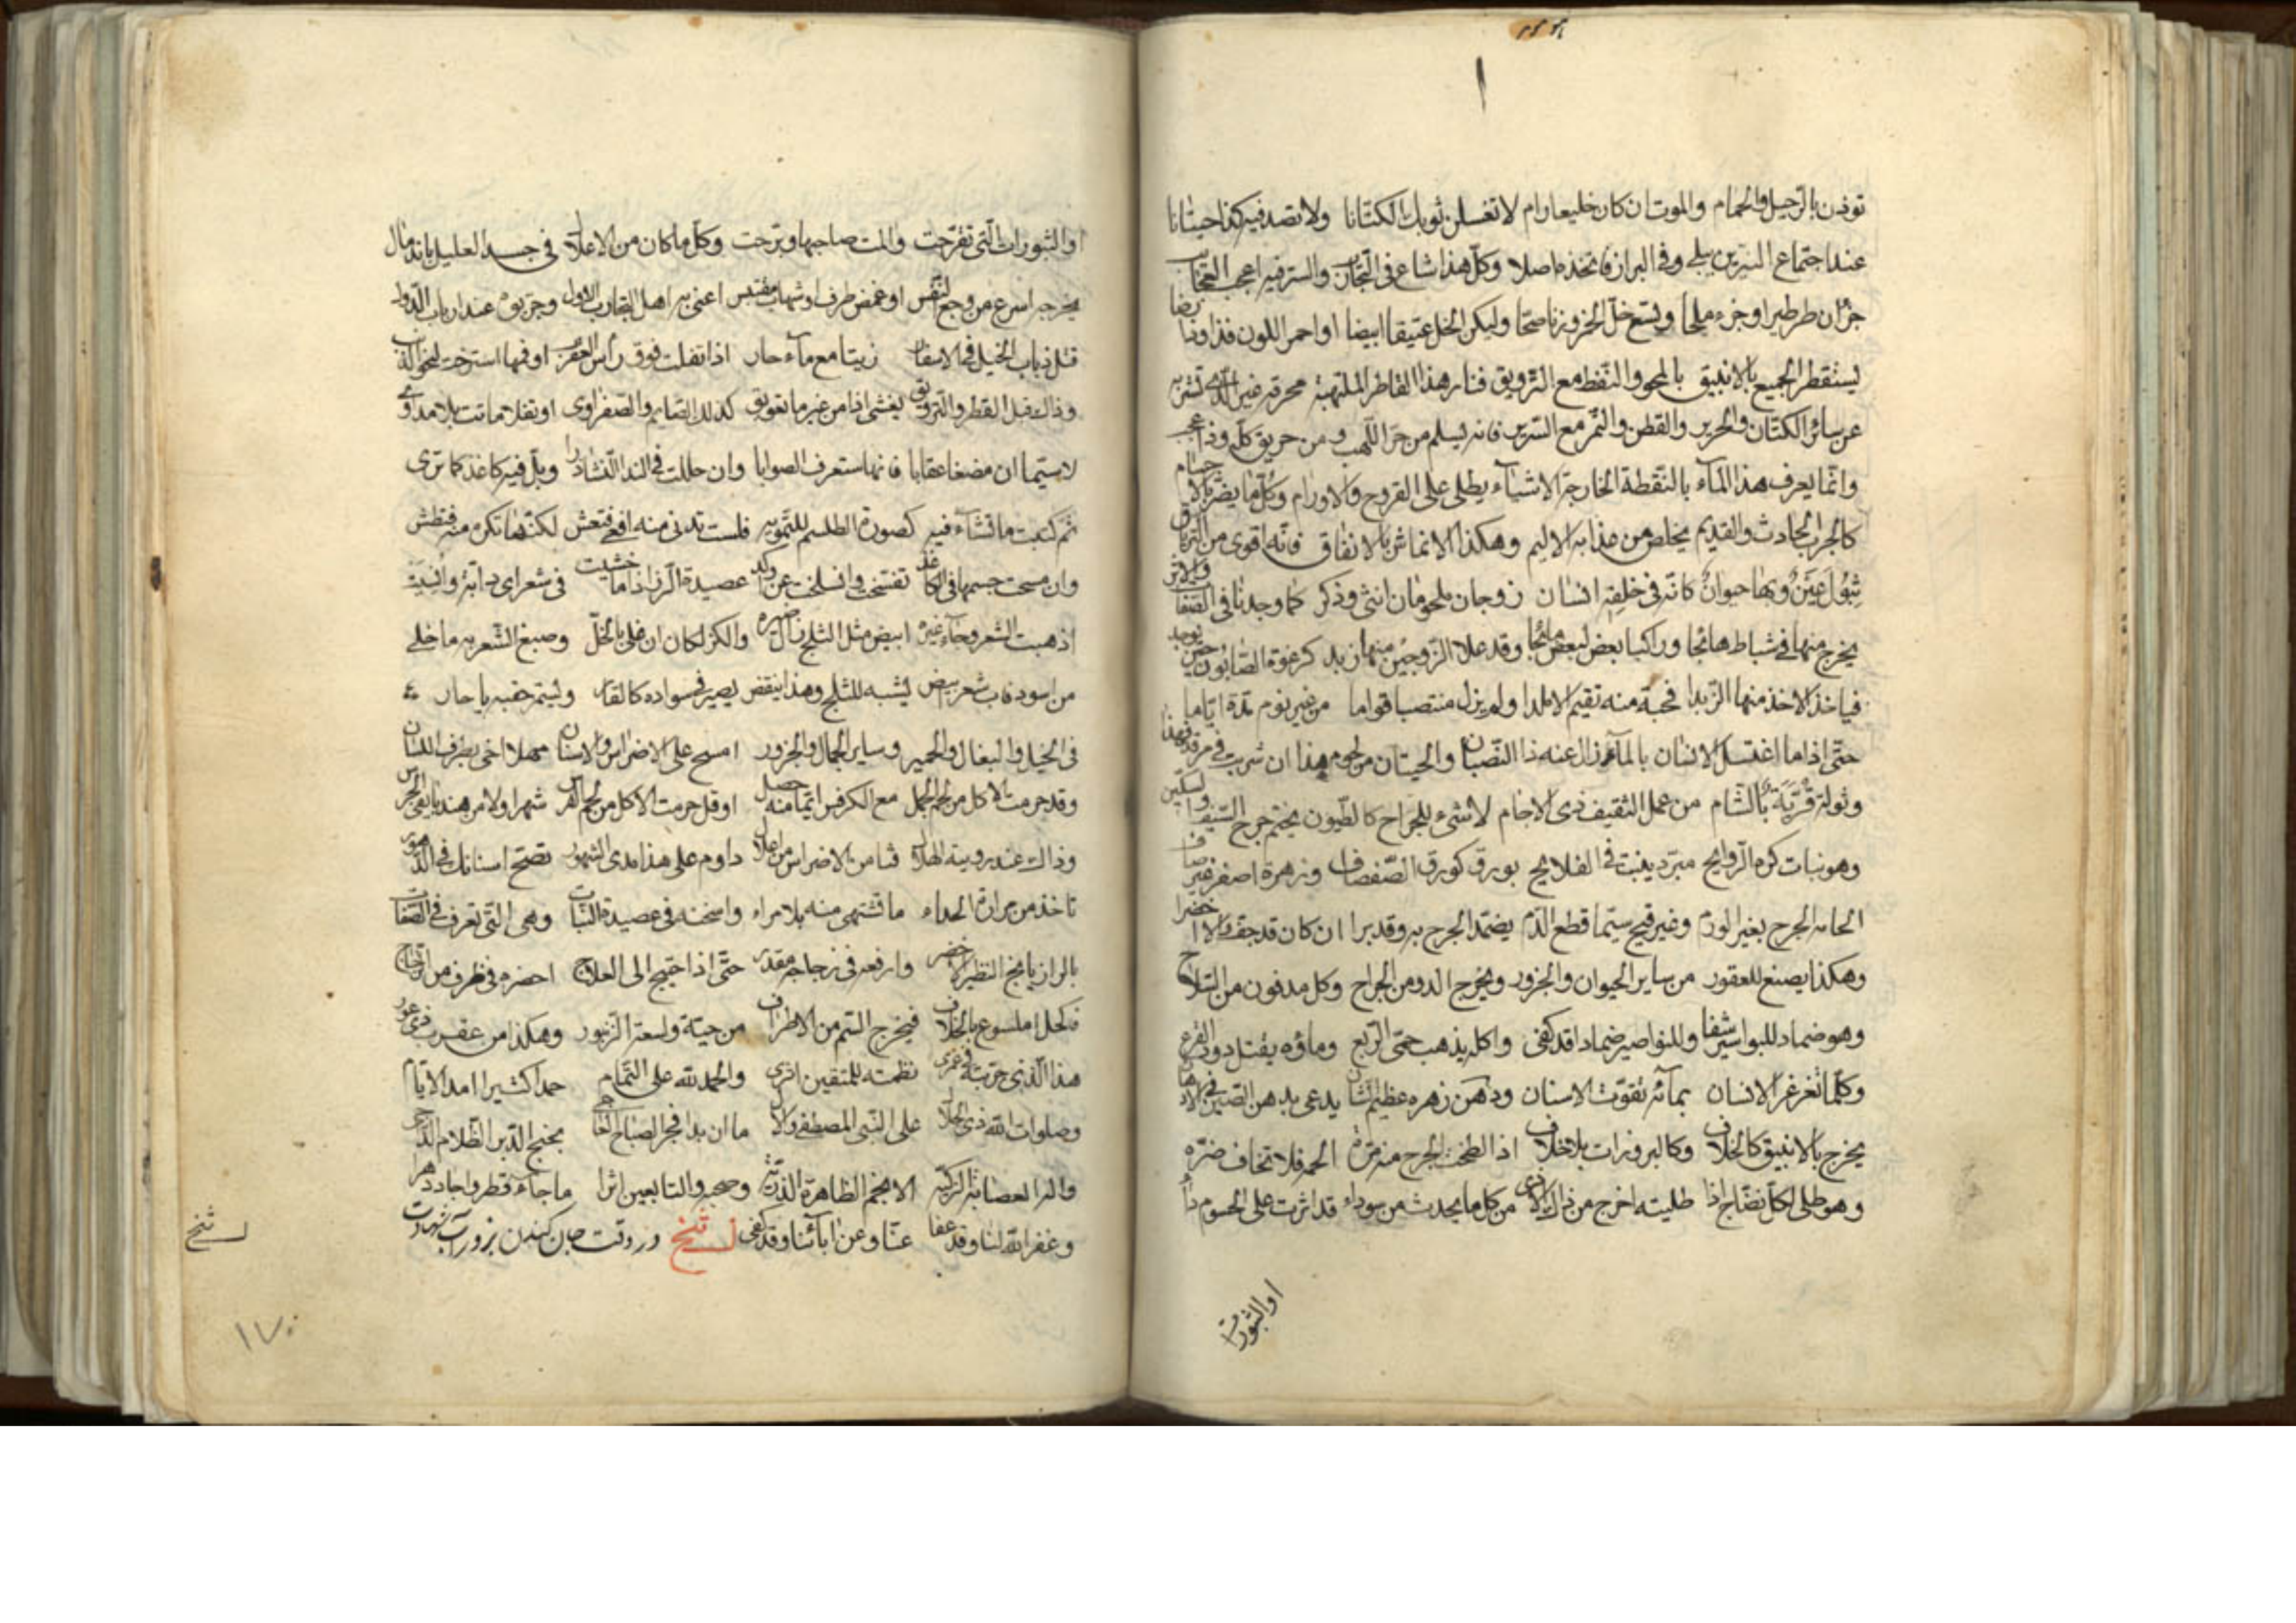 توذن بالرحيل والحمام والموت ان كان خليعا رام لا تغسلن ثوبك الكتانا ولا تصد فيه كذا حيتانا
عند اجتماع النيرين يبلى وفي البراز فاتخذه اصلا وكل هذا شاع في التجارب والستر فيه اعجب العجايب
جزان طرطير او جزء ملحا وتسع خل الخمر وزنا صحا وليكن الخل عتيقا ابيضا او احمر اللون فذا
يستقطر الجميع بالانبيق بالمحو والنفط مع الترويق فنار هذا القاطر الملتهبة محرقة غير الذي تشربه
عن ساير الكتان والحرير والقطن والتمر مع السرير فانه يسلم من حر اللهب ومن حريق كله وذا عجب
وانما يعرف هذا الماء بالنقطة الخارجة الاشياء يطلى على القروح والاورام وكل ما يضر بالاجسام
كالجرب الحادث والقديم يخلص من عذابه الاليم وهكذا الانماش بالاتفاق فانه اقوى من الترياق
عين وبها حيوان كانه في خلقه انسان زوجان ملحومان انثى وذكر كما وجدنا في الصفات والاثر
يخرج منها في شباط هائجا وراكبا بعض لبعض مائجا وقد علا الزوجين منها زبد كرغوة الصابون حين يوجد
فياخذ الاخذ منها الزبدا فحبة منه تقيم الامدا ولم يزل منتصبا قواما من غير نوم مدة اياما
حتى اذا ما اغتسل الانسان بالماء زال عنه ذا النصبان والحيتان من لحوم هذا ان شربت في مرقد فهذا
وثولة قرية بالشام من عمل الثقيف ذي الاخام لا شيء للجراح كالطيون يختم جرح السيف والسكين
وهو نبات كره الروايح مبرد ينبت في الفلايح بورق كورق الصفصاف وزهرة اصفر غير صاف
الحامه الجرح بغير الورم وغير قيح سيما قطع الدم يضمد الجرح به وقد برا ان كان قد جف والا اخضرا
وهكذا يصنع للعقور من ساير الحيوان والجزور ويخرج الدود من الجراح وكل مدفون من السلاح
وهو ضماد للبواسير شفا وللنواصير ضمادا قد كفى واكله يذهب حمى الربع وماؤه يقتل دود القرع
وكلما تغرغر الانسان بمائه تقوت الاسنان ودهن زهره عظيم الشان يدعى بدهن الصين في الادهان
يخرج بالانبيق كالخلاف وكالبرودات بلا خلاف اذا لطخت الجرح منه مرة الحمه فلا تخاف ضره
وهو طلى لكل نضاح اذا طليته اخرج من ذاك الاذى من كل ما يحدث من سوداء قد اثرت على الجسوم داء
او البثورات
او البثورات التي تقرحت والمت صاحبها وبرحت وكل ما كان من الاعلال في جسد العليل باندمال
يخرجه اسرع من رجع النفس او غمض طرف او شهاب مقتبس اعني به اهل التجارب الاول وجربوه عند ارباب الدول
قتل ذباب الخيل في الاسفار زيتا مع ماء حار اذا تفلت فوق رأس العقرب او فمها استرخت
وذاك قبل القطر والترويق يغشى اذا من غير ما تعويق كذلك الصايم والصفراوي او تفلا ماتت بلا مداوي
لا سيما ان مضغا عقابا فانها ستعرف الصوابا وان حللت في الندا النشادرا وبل فيه كاغذ كما ترى
ثم كتبت ما تشاء فيه كصورة الطلسم للتمويه فلست تدني منه افعى فتعش لكنها تكره منه فتطش
وان مسحت جسمها في الكاغذ تفسخت وانسلخت عن ولد عصيدة الرز اذا ما خشيت في شعر اي دابة
اذهبت الشعر وجاء غيره ابيض مثل الثلج نال خيره والكز لكان ان غلي بالخل وصبغ الشعر به ما خلي
من اسود فاب شعر بيض يشبه للثلج وهذا ينقض يصير في سواده كالقار وليتم خضبه يا حار
في الخيل والبغال والحمير وساير الجمال والجزور امسح على الاضراس والاسنان مهلا اخي بطرف اللسان
وقد حرمت الاكل من لحم الجمل مع الكرفس انما منه حصل او قل حرمت الاكل من لحم الفرس شهرا ولا من هندبا
وذاك عند روية الهلال فتامن الاضراس من اعلال داوم على هذا مدى الشهور تصح اسنانك في الدهور
تاخذ من مرارة الحداء ما تشتهي منه بلا مراء واسخنه في عصيدة النبات وهي التي تعرف في الصفات
بالرازيانج النظير الاخضر وارفعه في زجاجة مقدر حتى اذا احتيج الى العلاج احضره في ظرف من الزجاج
فاكحل الملسوع بالخلاف فيخرج السم من الاطراف من حية ولسعة الزنبور وهكذا من عقرب ذي عور
هذا الذي جربته في عمري نظمته للمتقين اثري والحمد لله على التمام حمدا كثيرا امد الايام
وصلوات الله ذي الجلال على النبي المصطفى والال ما ان بدا فجر الصباح بجنح الدين الظلام الداجي
واله العصابة الزكية الانجم الطاهرة الذرية وصحبه والتابعين اثرا ما جاء قطر واجاد دهرا
وغفر الله لنا وقد عفا عنا وعن ابائنا وقد كفى لشنخ در وقت جان كندن بزور آب شهادت
لشنخ
۱۷۰